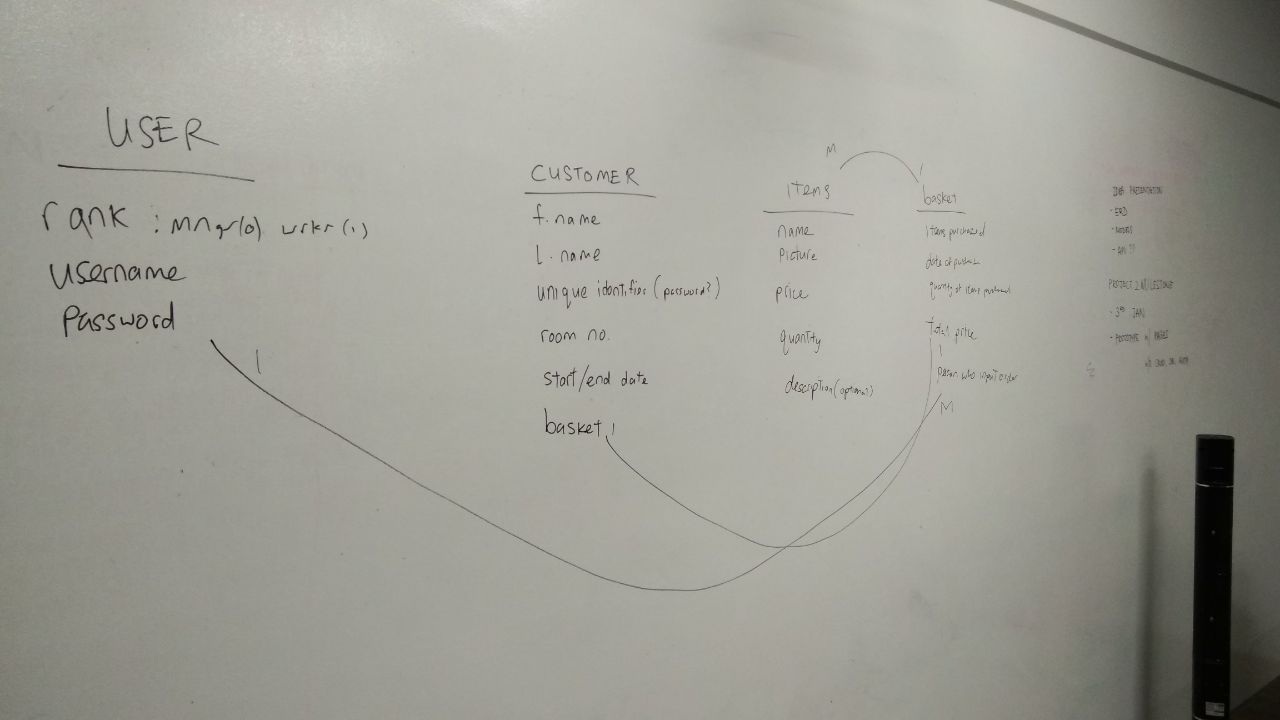 USER
rank : mngr(0) wrkr(1)
username
password
1
CUSTOMER
f. name
l. name
unique identifier (password?)
room no.
start/end date
basket 1
M
items
name
picture
price
quantity
description (optional)
1
basket
items purchased
date of purchase
quantity of items purchased
total price
1
person who input order
M
PRESENTATION
- ERD
- MODELS
- API ??
PROJECT 2 MILESTONE
- 3RD JAN
- PROTOTYPE w/ PAGES